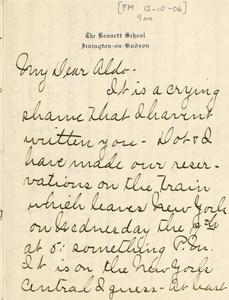 [PM 12-10-06]
9am
The Bennett School
Irvington-on-Hudson
My Dear Aldo-
It is a crying
shame that I haven't
written you - Dot & I
have made our reser-
vations on the train
which leaves New York
on Wednesday the
at 5: something P.M.
It is on the New York
Central I guess - At least